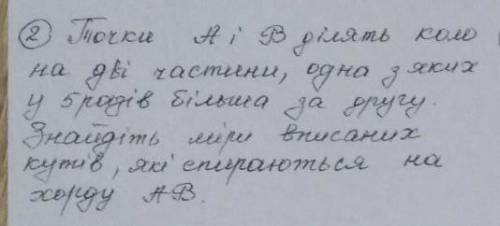 ② Точки А і В ділять коло
на дві частини, одна з яких
у 5 разів більша за другу.
Знайдіть міри вписаних
кутів, які спираються на
хорду АВ.